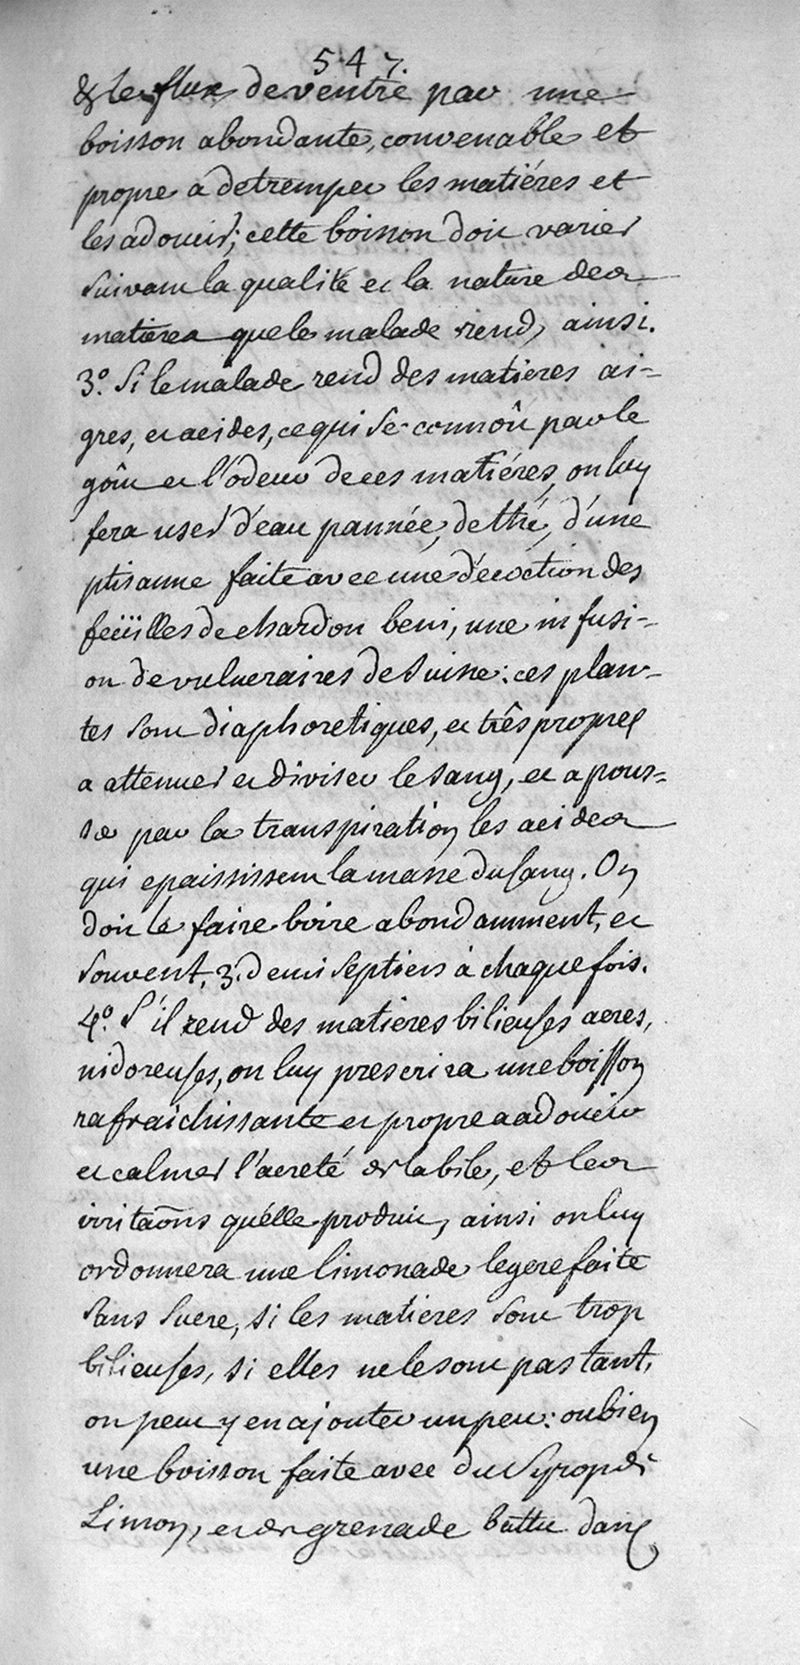 547.
& le flux de ventre par une
boisson abondante, convenable et
propre a detremper les matiéres et
les adoucir; cette boisson doit varier
suivant la qualité et la nature des
matieres que le malade rend, ainsi.
3.º Si le malade rend des matieres ai-
gres, et acides, ce qui se connoît par le
goût et l'ódeur de ces matiéres, on luy
fera user d'eau pannée, de thé, d'une
ptisanne faite avec une décoction des
feüilles de chardon beni, une infusi-
on de vulneraires de Suisse: ces plan-
tes sont diaphoretiques, et très propres
a attenuer et diviser le sang, et a pous-
ser par la transpiration les acides
qui epaississent la masse du sang. On
doit le faire boire abondamment, et
souvent, 3. demi septiers à chaque fois.
4.º S'il rend des matieres bilieuses acres,
nidoreuses, on luy prescrira une boisson
rafraichissante et propre a adoucir
et calmer l'acreté de la bile, et les
irritaõns qu'élle produit, ainsi on luy
ordonnera une limonade legere faite
sans sucre, si les matieres sont trop
bilieuses, si elles ne le sont pas tant,
on peut y en ajouter un peu: ou bien
une boisson faite avec du Syrop de
Limon, et de grenade battu dans